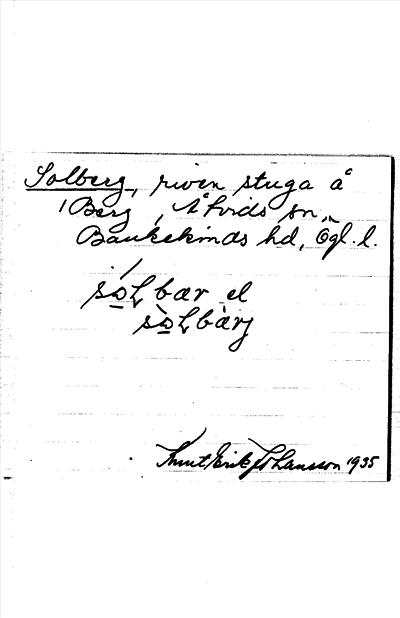 Solberg, riven stuga å
1 Berg, Åtvids sn,
Bankekinds hd, Ögl. l.
sólbær el
sòlbàrj
Knut Erik Johansson 1935